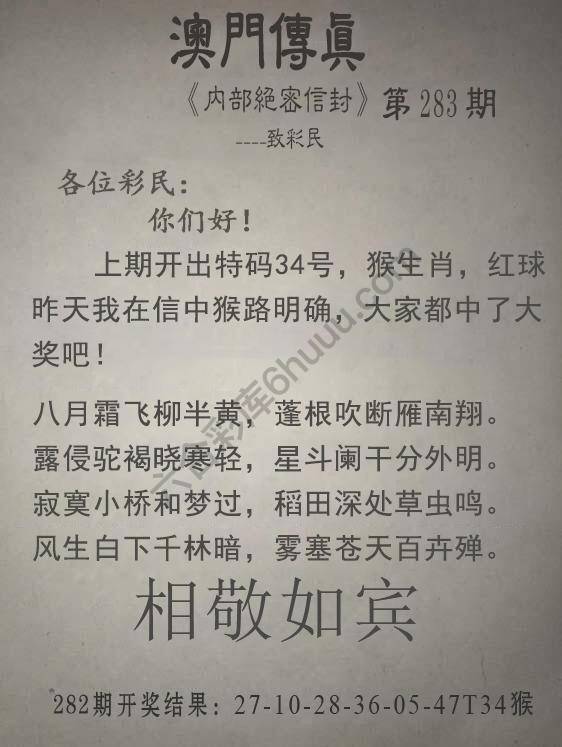 澳門傳真
《内部絕密信封》第283期
----致彩民
各位彩民：
你们好！
上期开出特码34号，猴生肖，红球
昨天我在信中猴路明确，大家都中了大
奖吧！
八月霜飞柳半黄，蓬根吹断雁南翔。
露侵驼褐晓寒轻，星斗阑干分外明。
寂寞小桥和梦过，稻田深处草虫鸣。
风生白下千林暗，雾塞苍天百卉殚。
相敬如宾
282期开奖结果：27-10-28-36-05-47T34猴
六合彩库6huuu.com